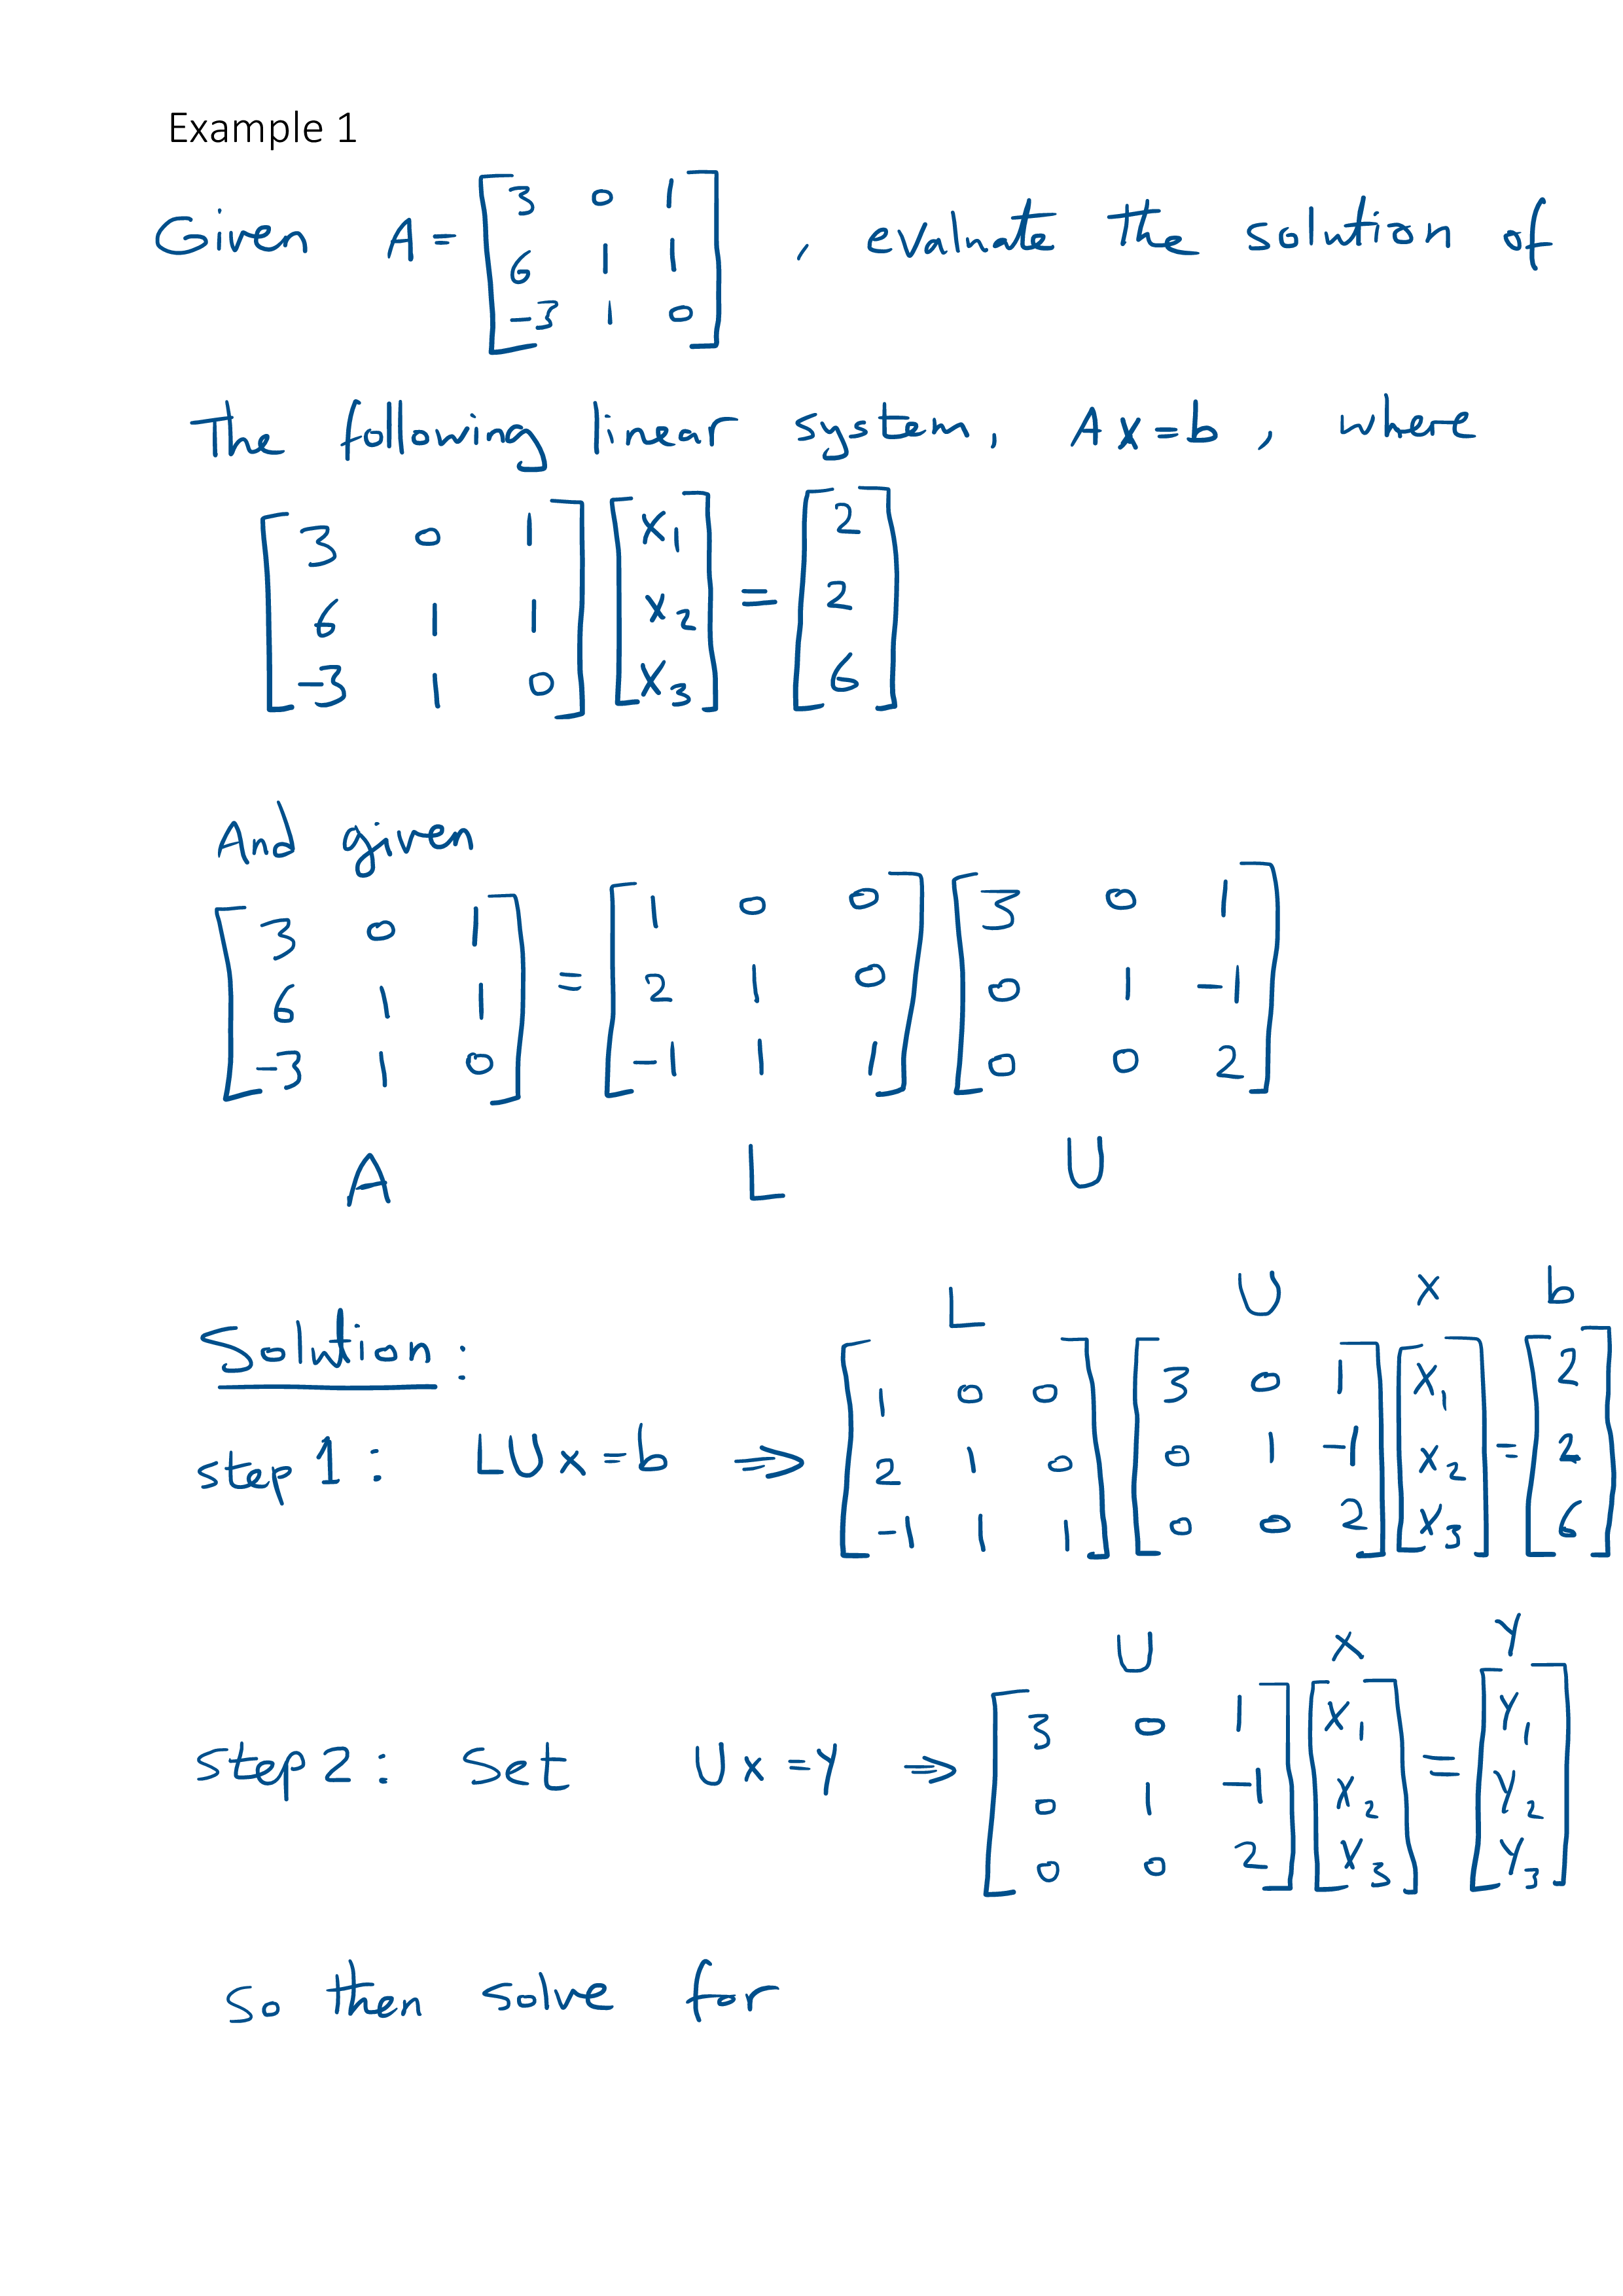 Example 1
Given A = [3 0 1; 6 1 1; -3 1 0] , evaluate the solution of
The following linear system, Ax=b, where
[3 0 1; 6 1 1; -3 1 0] [x1; x2; x3] = [2; 2; 6]
And given
[3 0 1; 6 1 1; -3 1 0] = [1 0 0; 2 1 0; -1 1 1] [3 0 1; 0 1 -1; 0 0 2]
A L U
Solution:
L U x b
step 1: LUx=b ⇒ [1 0 0; 2 1 0; -1 1 1] [3 0 1; 0 1 -1; 0 0 2] [x1; x2; x3] = [2; 2; 6]
U x y
step 2: Set Ux=y ⇒ [3 0 1; 0 1 -1; 0 0 2] [x1; x2; x3] = [y1; y2; y3]
So then solve for